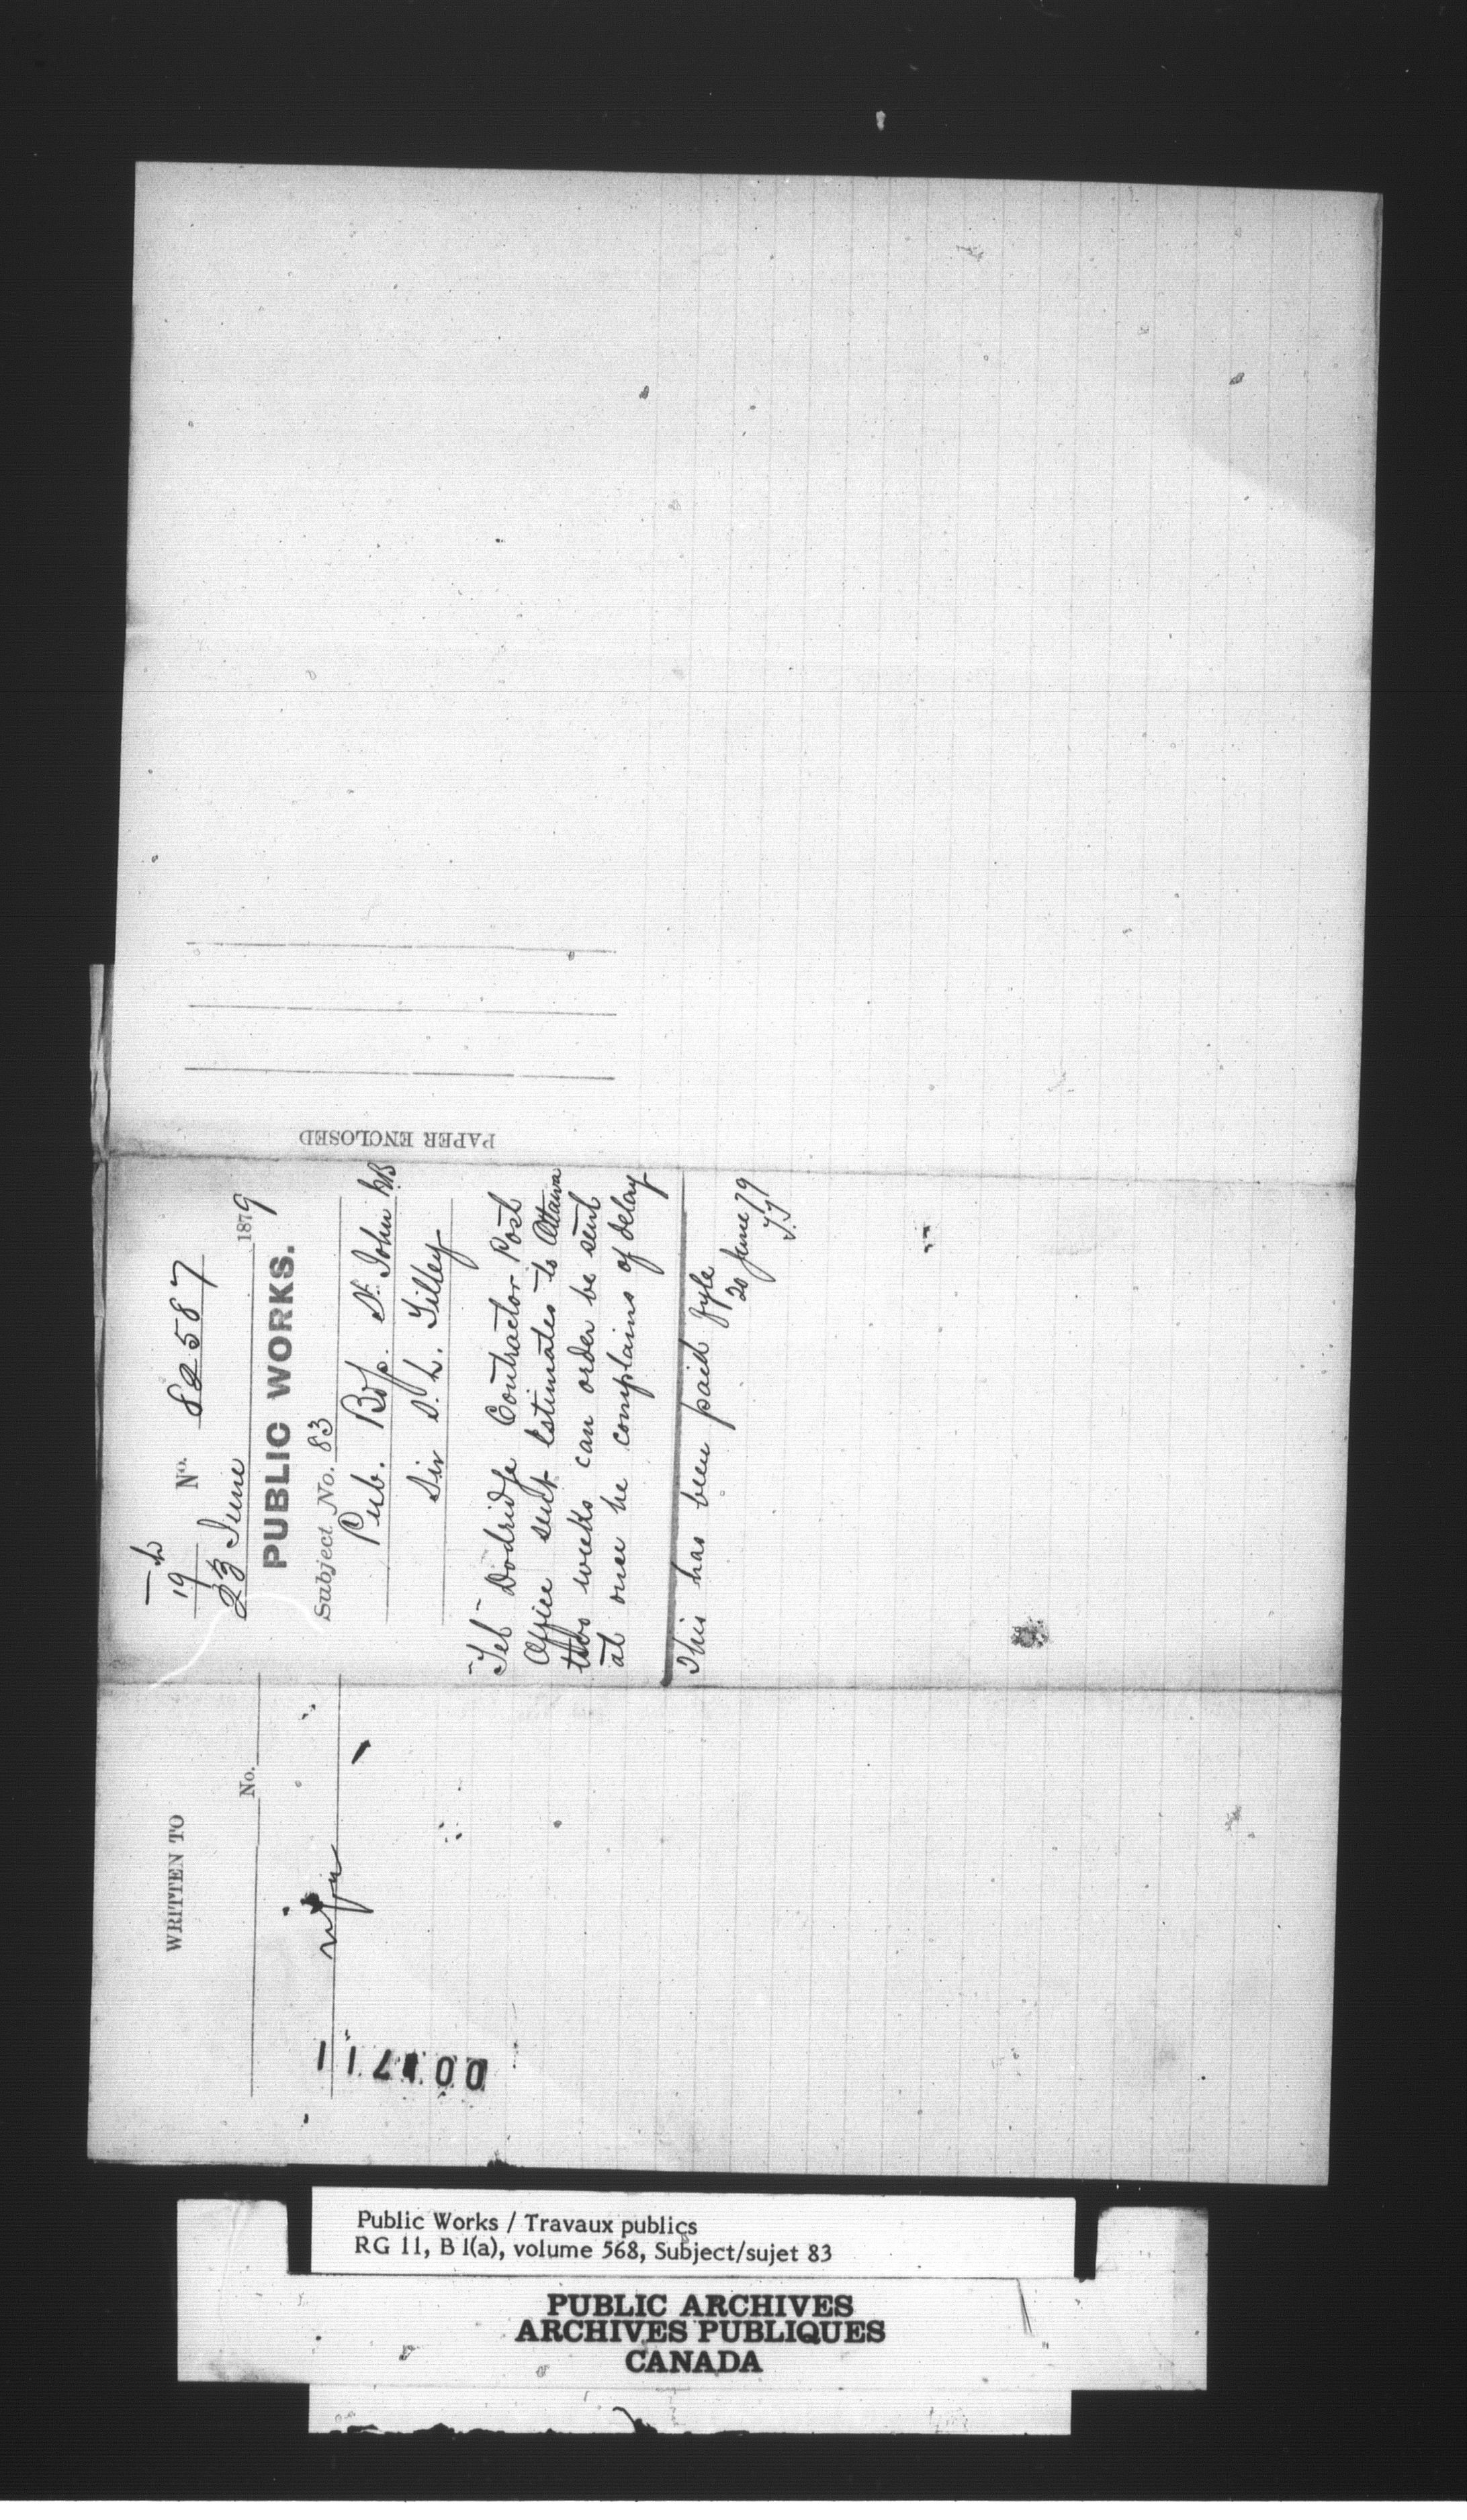 WRITTEN TO
No.
19
No. 82587
23 June 1879
PUBLIC WORKS.
Subject No. 83
Pub. Bdgs. St. John NB
Sir S. L. Tilley
Tel - Dodridge Contractor Post
Office sent Estimates to Ottawa
two weeks can order be sent
at once he complains of delay
This has been paid fyle
20 June 79
PAPER ENCLOSED
Public Works / Travaux publics
RG 11, B 1(a), volume 568, Subject/sujet 83
PUBLIC ARCHIVES
ARCHIVES PUBLIQUES
CANADA